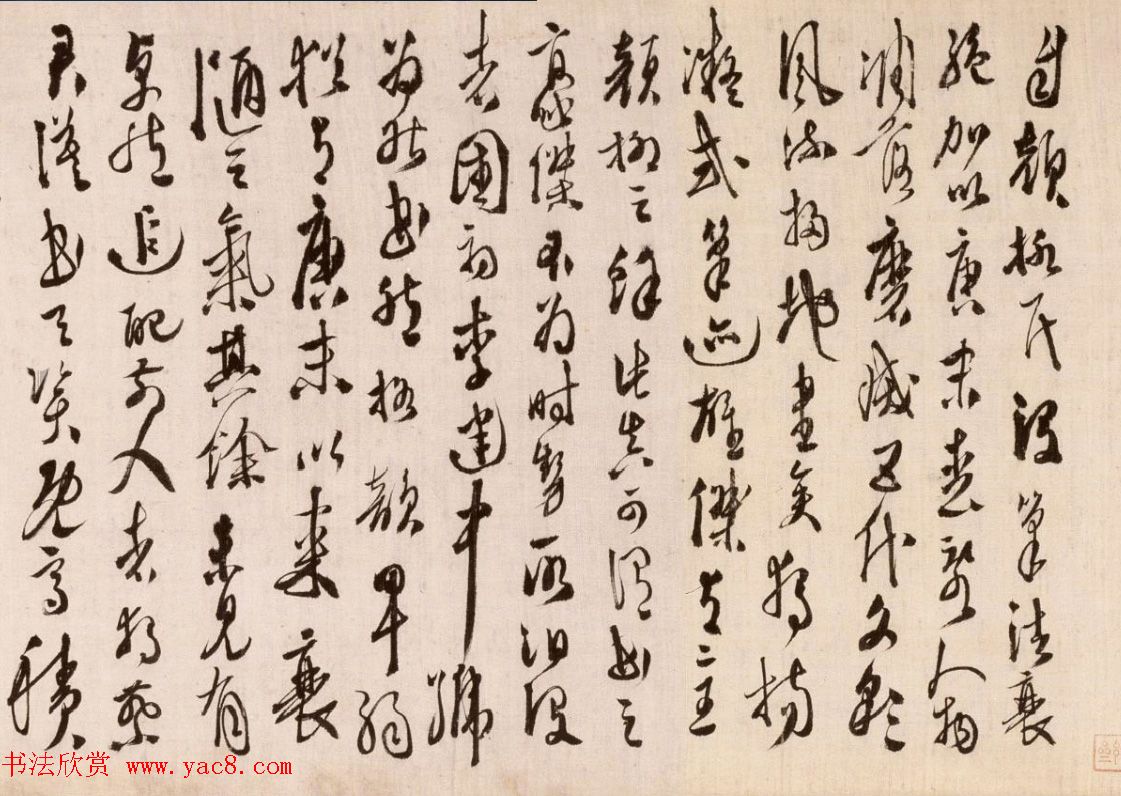 自顏柳氏沒筆法衰
絕加以唐末喪亂人物
凋落磨滅五代文彩
風流掃地盡矣獨楊
凝式筆迹雄傑有二王
顏柳之餘此真可謂書之
豪傑不為時勢所汩沒
者國初李建中號
為能書然格韻卑弱
猶有唐末以來衰
隨之氣其餘未見有
卓然追配前人者獨蔡
君謨書天資既高積
书法欣赏 www.yac8.com